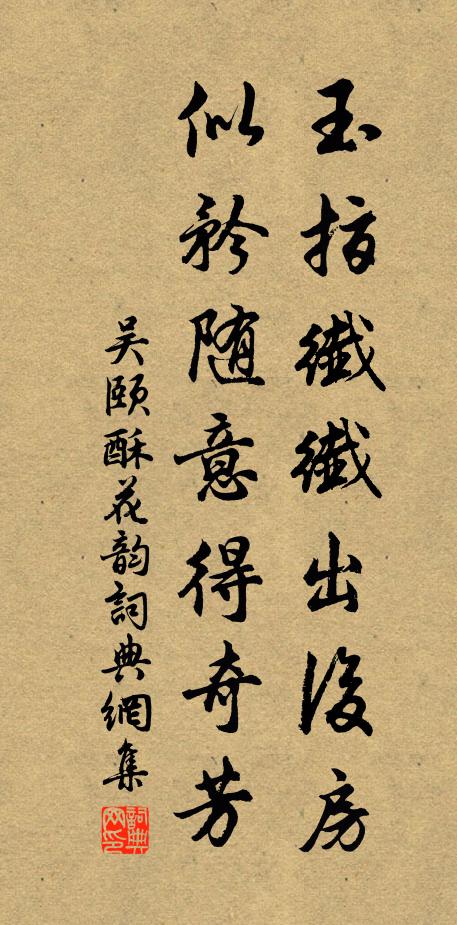 玉指纖纖出後房
似矜隨意得奇芳
吴頤酥花韵詞典網集
詞典网印